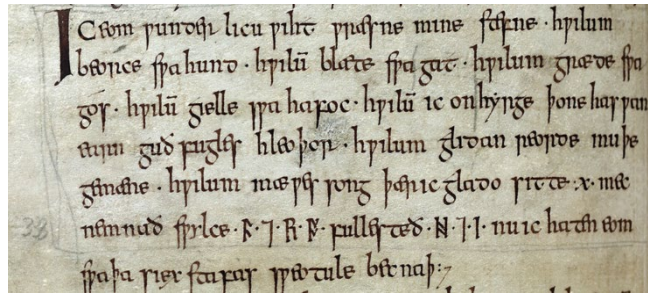 Ic eom ƿunderlicu ƿiht ƿræsne mine stefne · hƿilum
beorce sƿa hund · hƿilū blæte sƿa gat · hƿilum græde sƿa
gos · hƿilū gielle sƿa hafoc · hƿilū ic onhyrge þone hasƿan
earn guð fugles hleoþor · hƿilum glidan reorde muþe
gemæne · hƿilum mæƿes song þær ic glado sitte · x · mec
nemnað sƿylce · ᚫ · ⁊ · ᚱ · ᚩ · fullesteð · ᚻ · ⁊ · ᛁ · nu ic haten eom
sƿa þa siex stafas sƿeotule becnaþ :⁊